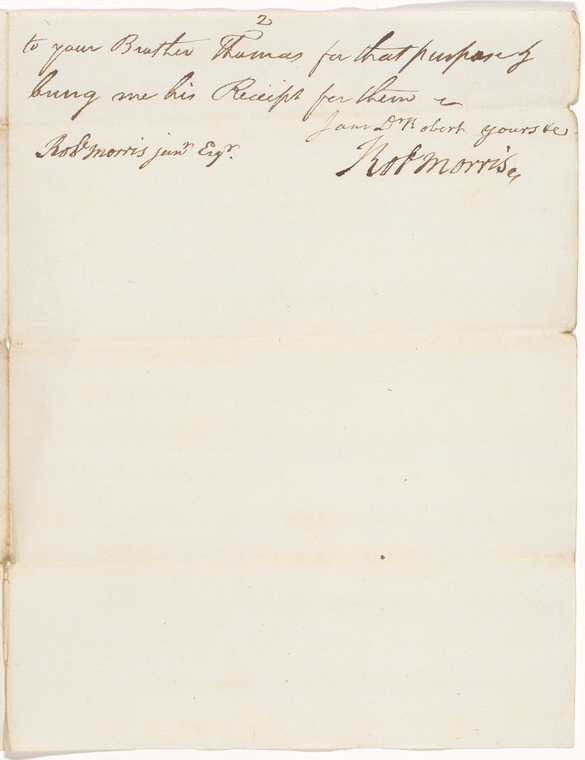 2
to your Brother Thomas for that purpose &
bring me his Receipt for them
I am Dr Robert yours &c
Robt Morris junr Esqr.
Robt Morris